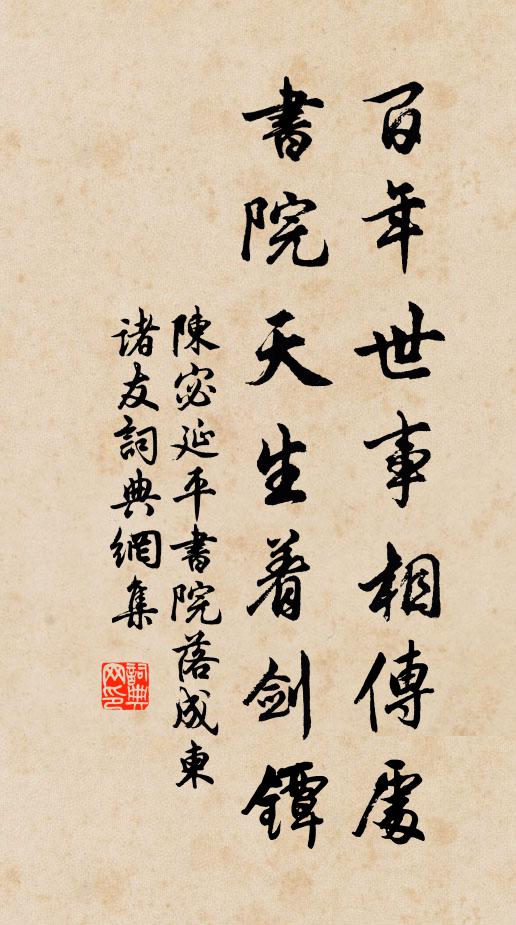 百年世事相傳處
書院天生着劍鐔
陳宓延平書院落成東
諸友詞典網集
詞典網印